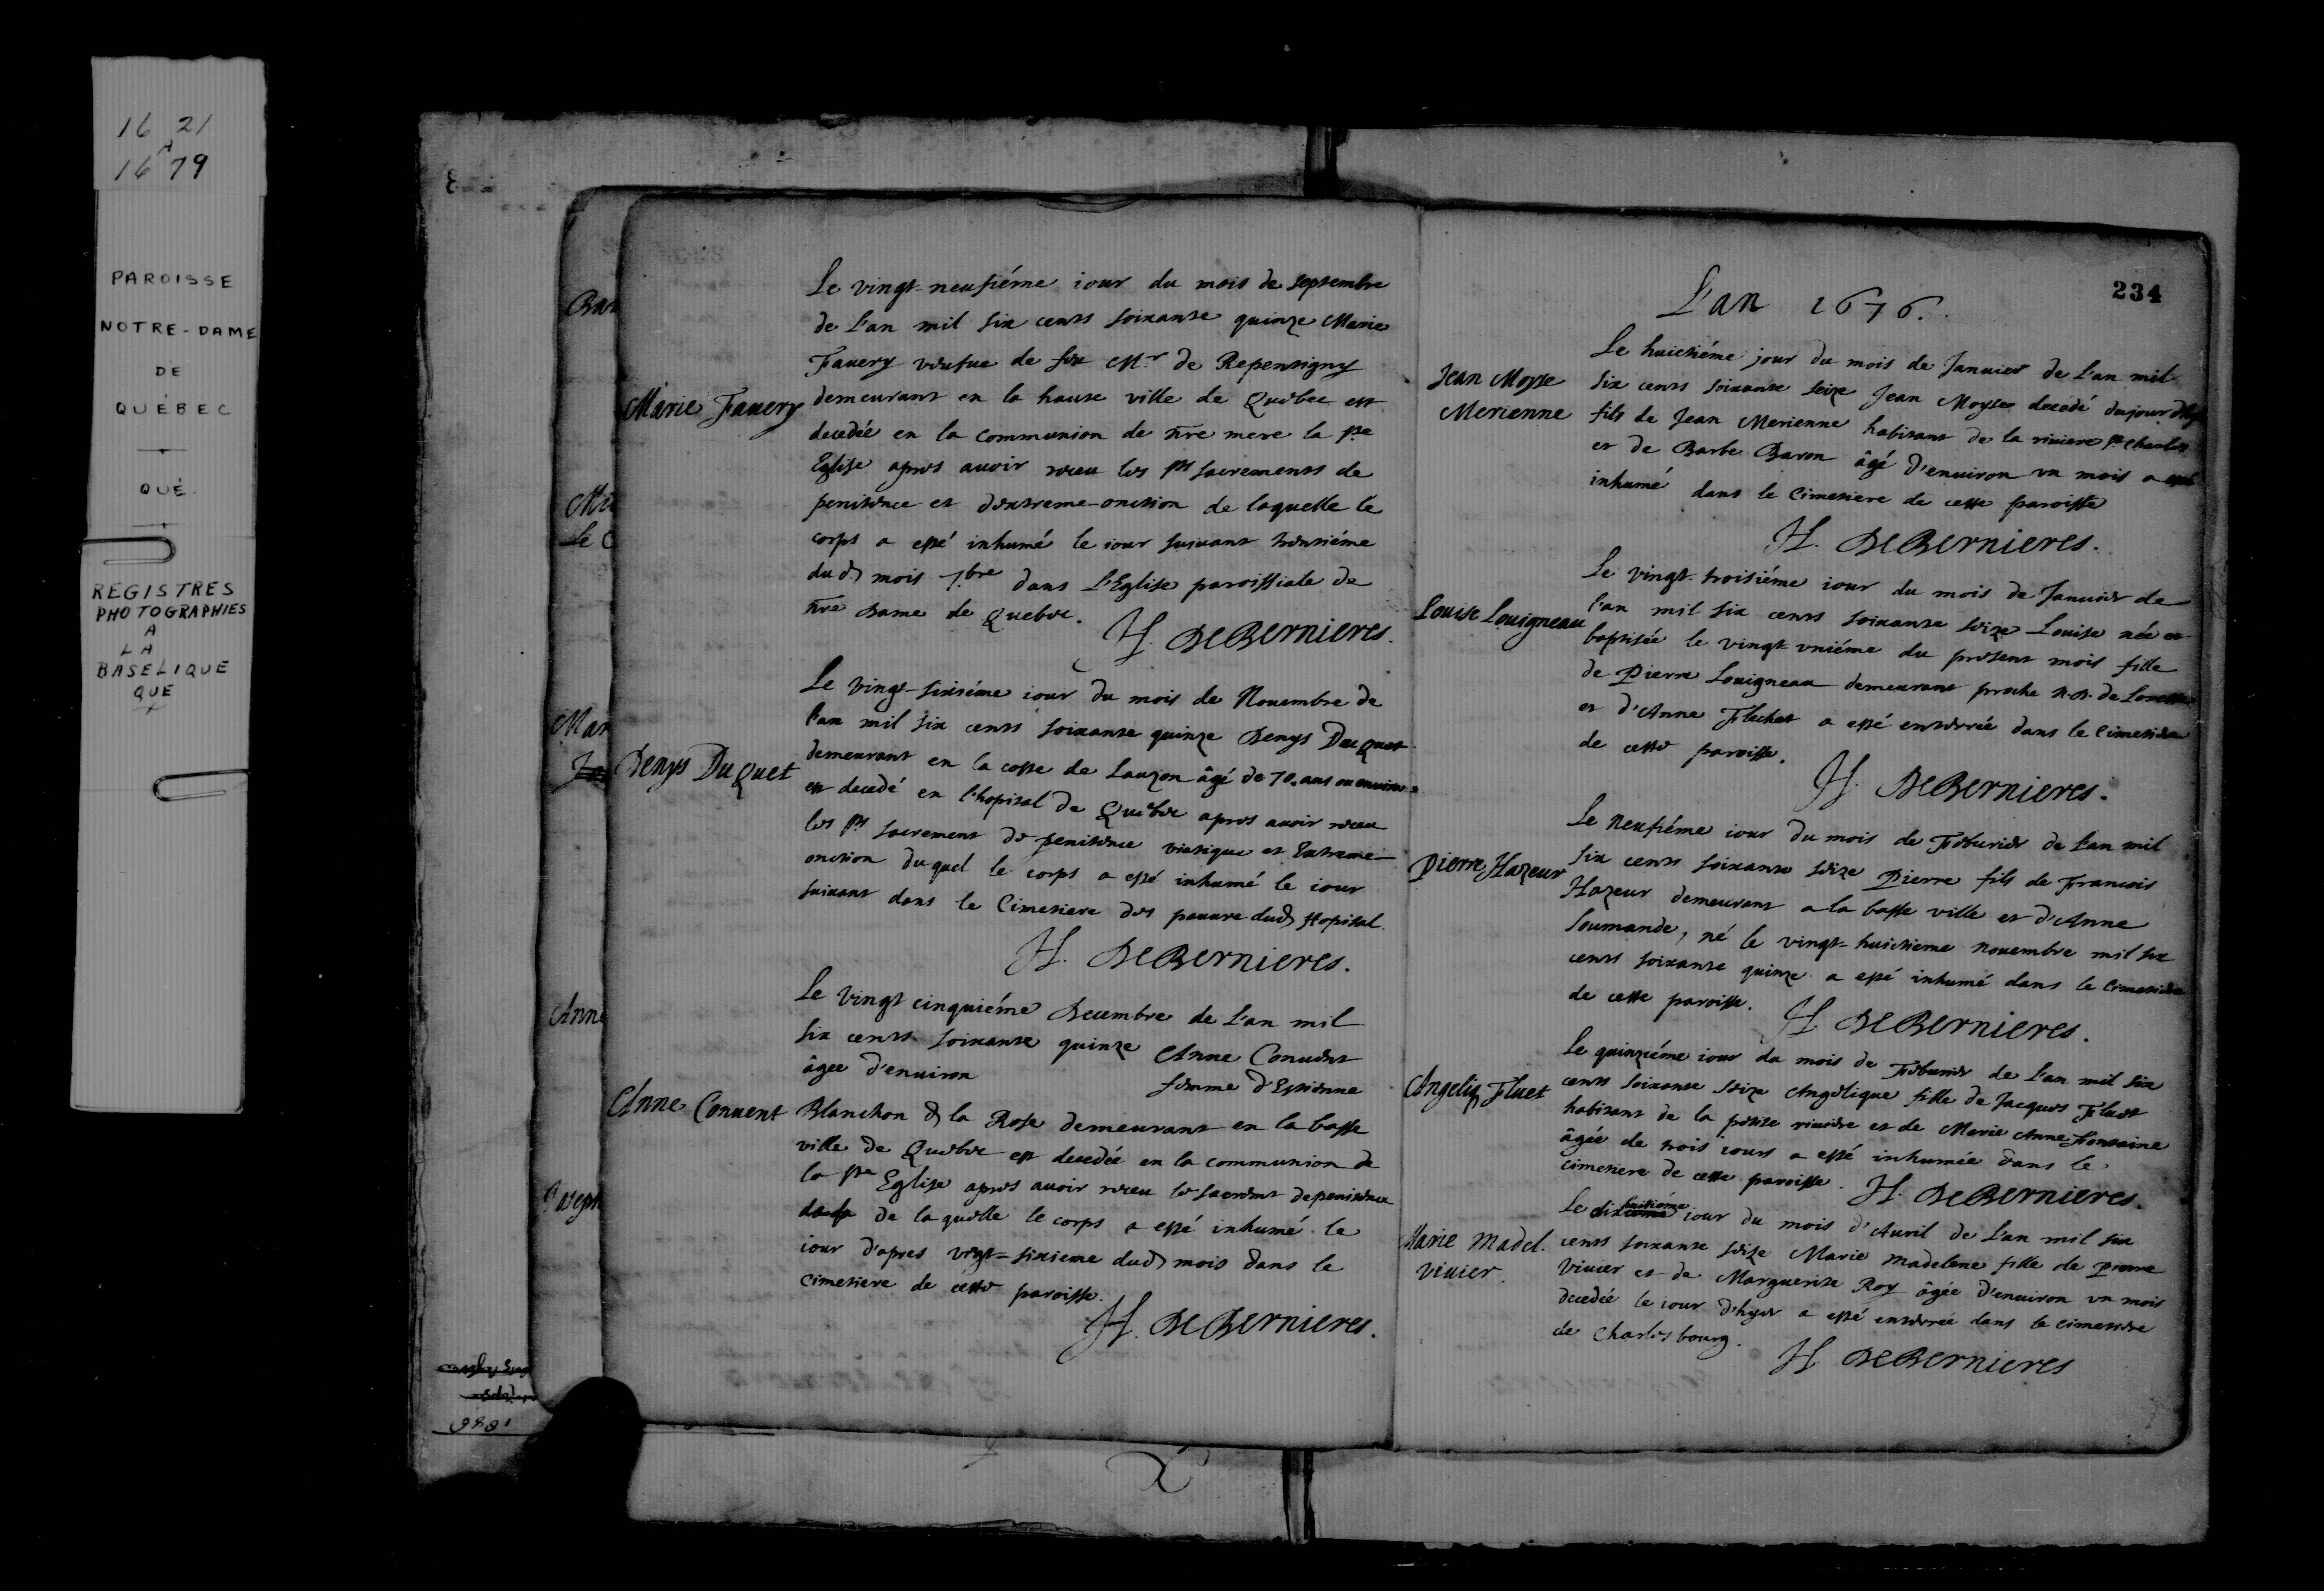 16 21
A
16 79
PAROISSE
NOTRE-DAME
DE
QUÉBEC
QUÉ.
REGISTRES
PHOTOGRAPHIES
A
LA
BASELIQUE
QUE
Le vingt-neufiéme iour du mois de septembre
de L'an mil six cents soixante quinze Marie
Fauery veufue de feu Mr. de Repentigny
Marie Fauery
demeurant en la haute ville de Quebec est
decedée en la communion de nre mere la ste
Eglise apres auoir receu les sts sacrements de
penitence et d'extreme-onction de laquelle le
corps a esté inhumé le iour suiuant trentiéme
dud mois 7bre dans L'Eglise paroissiale de
nre Dame de Quebec.
H. DeBernieres.
Le vingt-sixiéme iour du mois de Nouembre de
l'an mil six cents soixante quinze Denys DuQuet
Denys DuQuet
demeurant en la coste de Lauzon âgé de 70. ans ou enuiron
est decedé en l'hopital de Quebec apres auoir receu
les sts sacrement de penitence viatique et Extreme-
onction duquel le corps a esté inhumé le iour
suiuant dans le Cimetiere des pauure dud Hopital.
H. DeBernieres.
Le vingt cinquiéme Decembre de L'an mil
six cents soixante quinze Anne Conuent
âgée d'enuiron femme d'Estienne
Anne Conuent
Blanchon d la Rose demeurant en la basse
ville de Quebec est decedée en la communion de
la ste Eglise apres auoir receu le sacremt de penitence
de laquelle le corps a esté inhumé le
iour d'apres vingt-sixieme dud mois dans le
cimetiere de cette paroisse.
H. DeBernieres.
234
L'an 1676.
Jean Moyse
Merienne
Le huictiéme jour du mois de Januier de L'an mil
six cents soixante seize Jean Moyse decedé du jour d'hyer
fils de Jean Merienne habitant de la riuiere st Charles
et de Barbe Baron âgé d'enuiron vn mois a esté
inhumé dans le Cimetiere de cette paroisse
H. DeBernieres.
Louise Louigneau
Le vingt-troisiéme iour du mois de Januier de
l'an mil six cents soixante seize Louise née et
baptisée le vingt vniéme du present mois fille
de Pierre Louigneau demeurant proche N.D. de Lorette
et d'Anne Flechet a esté enterrée dans le Cimetiere
de cette paroisse.
H. DeBernieres.
Pierre Hazeur
Le neufiéme iour du mois de Feburier de L'an mil
six cents soixante seize Pierre fils de Francois
Hazeur demeurant a la basse ville et d'Anne
Soumande, né le vingt-huictieme nouembre mil six
cents soixante quinze a esté inhumé dans le Cimetiere
de cette paroisse.
H. DeBernieres.
Angeliq Fluet
Le quinziéme iour du mois de Feburier de L'an mil six
cents soixante seize Angelique fille de Jacques Fluet
habitant de la petite riuiere et de Marie Anne Fontaine
âgée de trois iours a esté inhumée dans le
cimetiere de cette paroisse.
H. DeBernieres.
Marie Madel.
Viuier.
Le dixhuitiéme iour du mois d'Auril de L'an mil six
cents soixante seize Marie Madelene fille de Pierre
Viuier et de Marguerite Roy âgée d'enuiron vn mois
decedée le iour d'hyer a esté enterrée dans le cimetiere
de Charlesbourg.
H DeBernieres